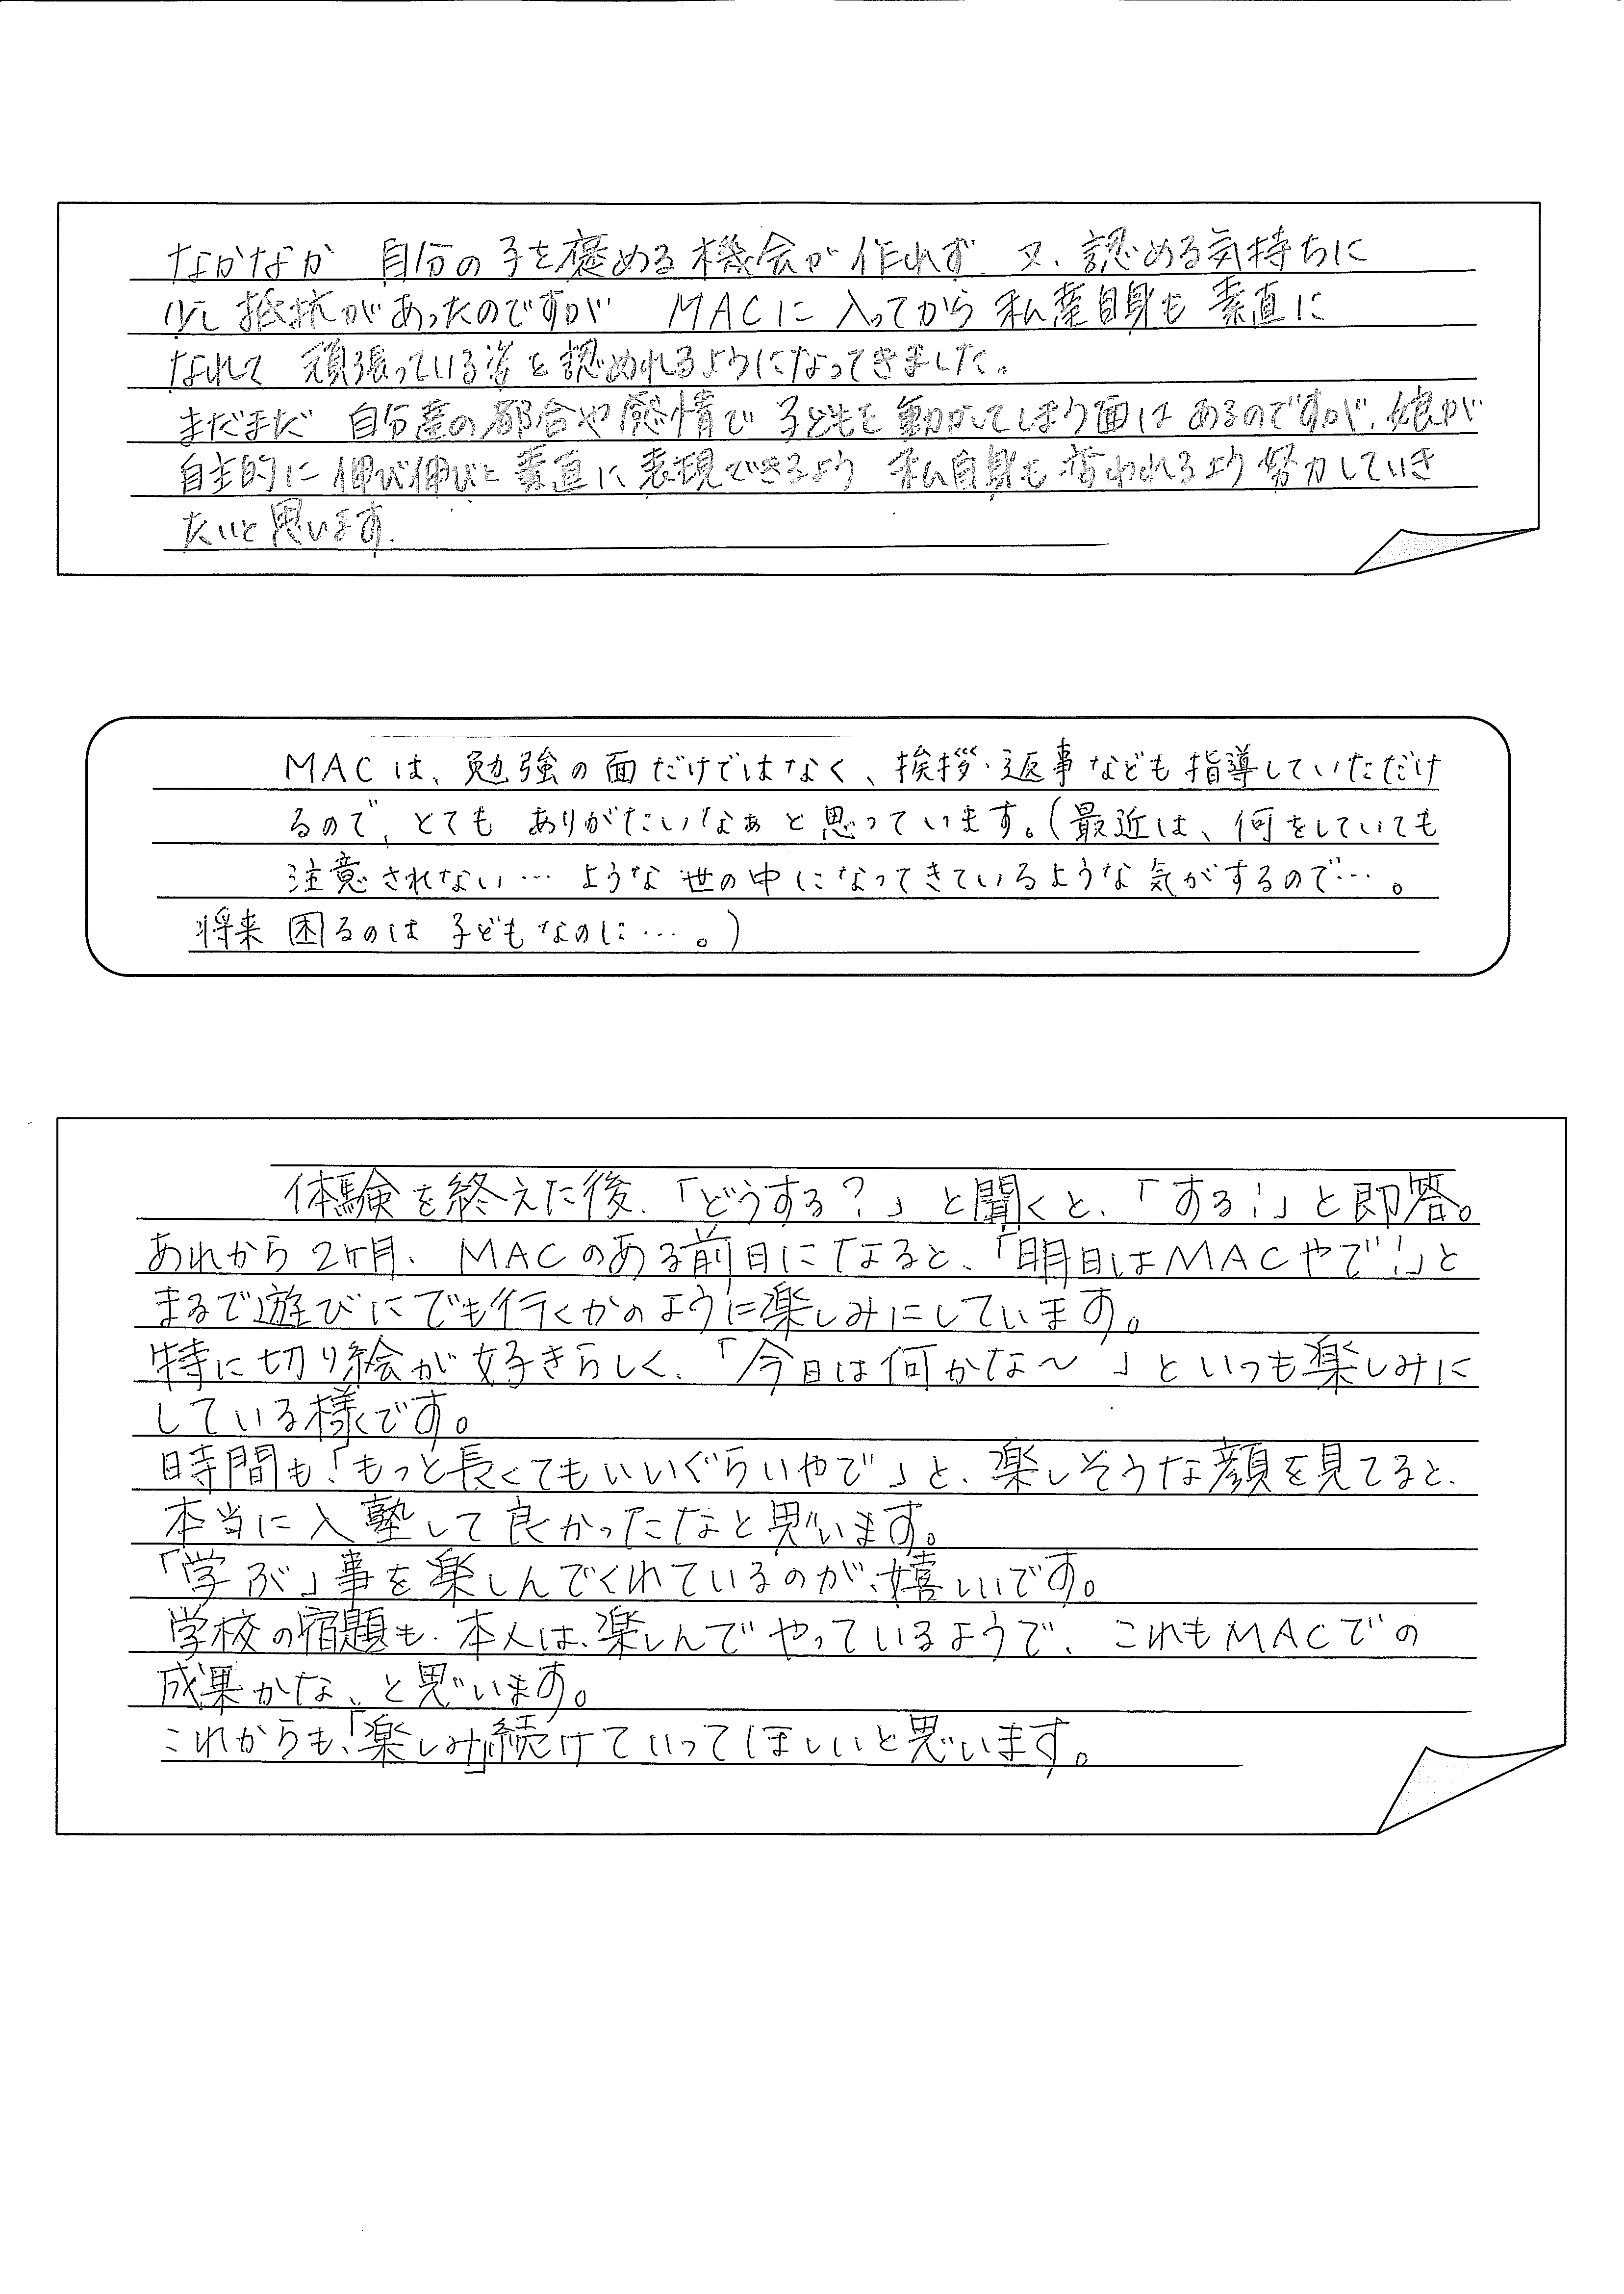 なかなか 自分の子を褒める機会が作れず、又、認める気持ちに
少し抵抗があったのですが MACに入ってから私達自身も素直に
なれて 頑張っている姿を認めれるようになってきました。
まだまだ 自分達の都合や感情で子どもを動かしてしまう面はあるのですが、娘が
自主的に伸び伸びと素直に表現できるよう 私自身も変われるよう努力していき
たいと思います.
MACは、勉強の面だけではなく、挨拶・返事なども指導していただけ
るので、とても ありがたいなぁと思っています。(最近は、何をしていても
注意されない… ような世の中になってきているような気がするので…。
将来 困るのは 子どもなのに…。)
体験を終えた後、「どうする?」と聞くと、「する!」と即答。
あれから2ヶ月、MACのある前日になると、「明日はMACやで!」と
まるで遊びにでも行くかのように楽しみにしています。
特に切り絵が好きらしく、「今日は何かな〜」といつも楽しみに
している様です。
時間も「もっと長くてもいいぐらいやで」と、楽しそうな顔を見てると、
本当に入塾して良かったなと思います。
「学ぶ」事を楽しんでくれているのが、嬉しいです。
学校の宿題も、本人は、楽しんでやっているようで、これもMACでの
成果かな、と思います。
これからも、「楽しみ」続けていってほしいと思います。